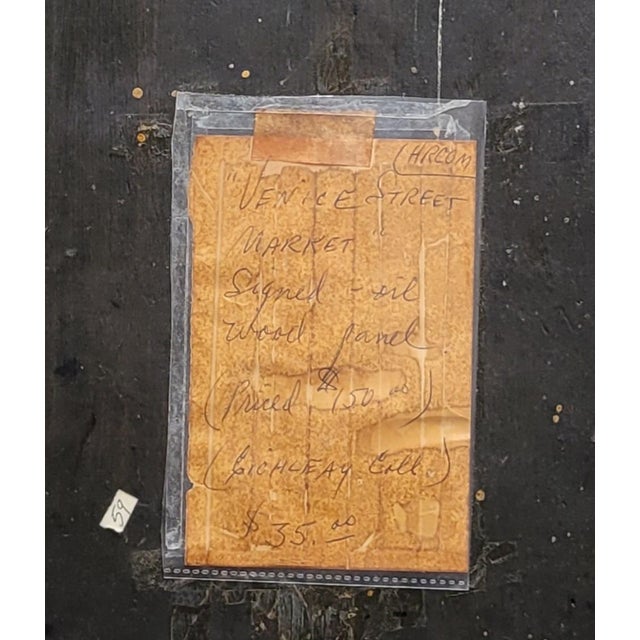 "VENICE STREET
MARKET"
Signed - oil
wood panel
(Priced $150.00)
Coll.)
$35.00
59